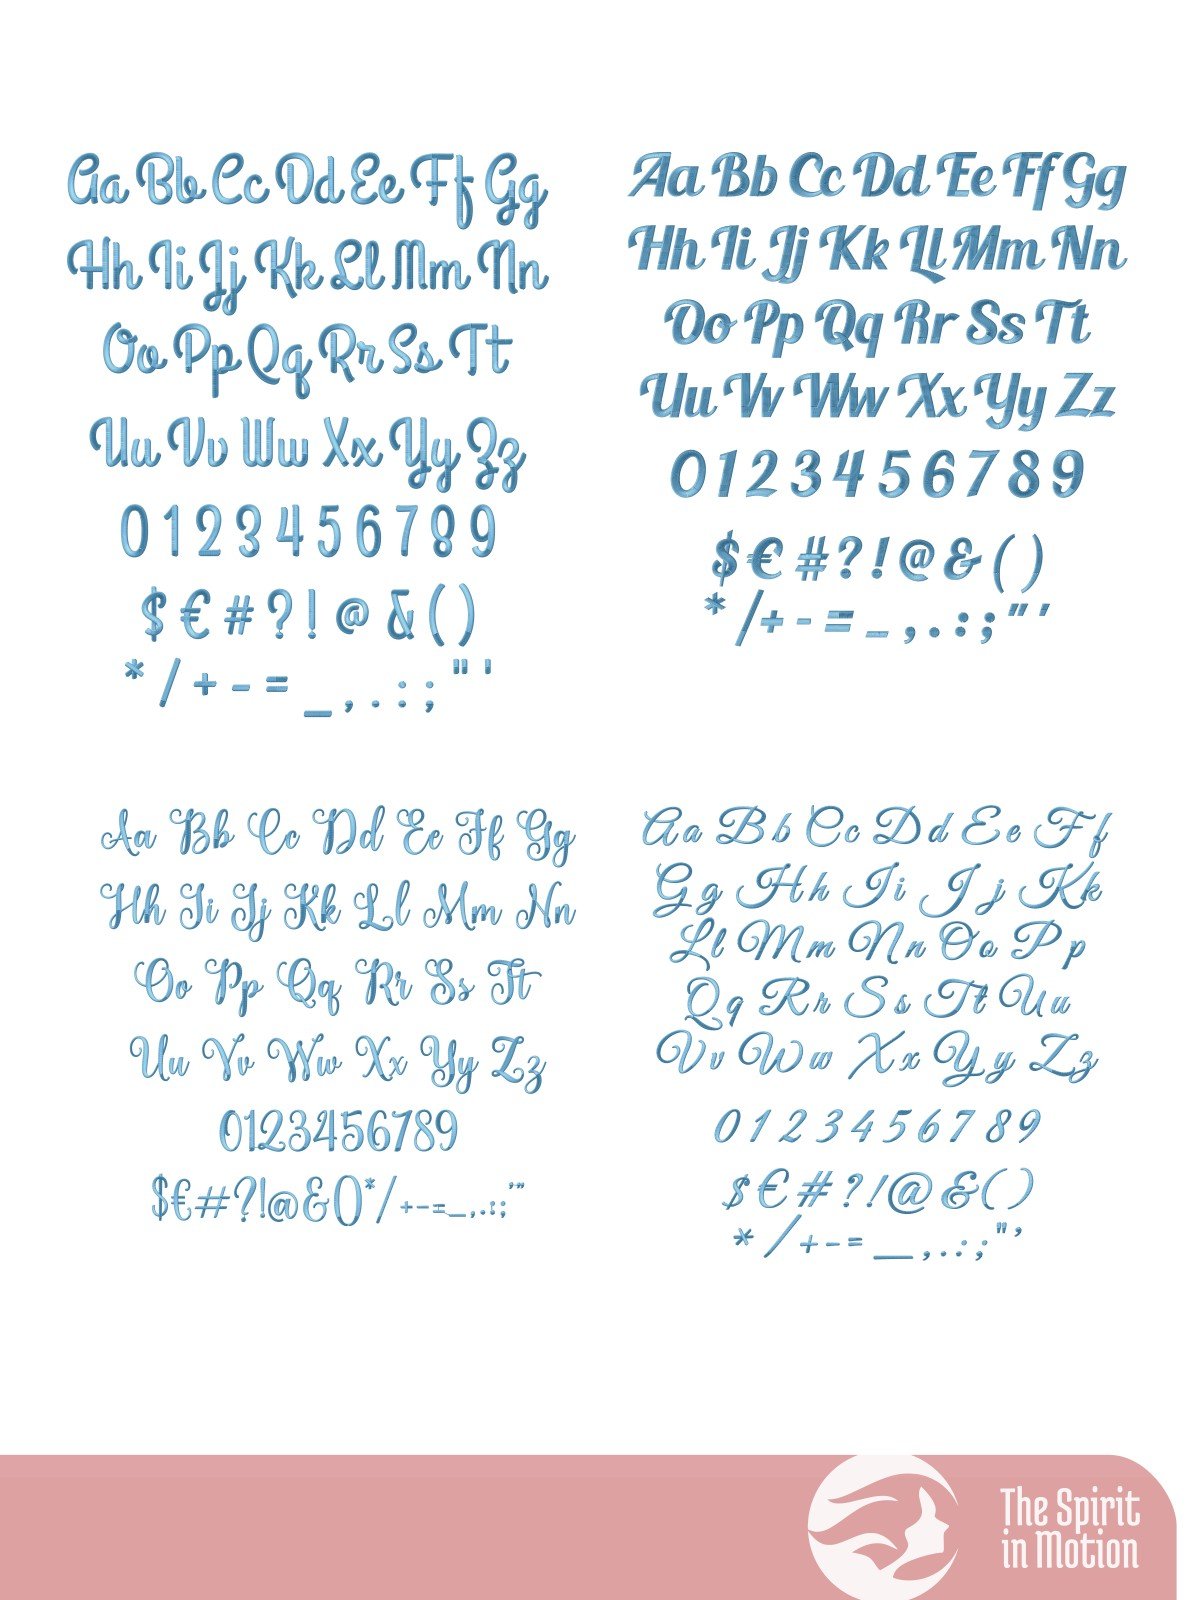 Aa Bb Cc Dd Ee Ff Gg
Hh Ii Jj Kk Ll Mm Nn
Oo Pp Qq Rr Ss Tt
Uu Vv Ww Xx Yy Zz
0 1 2 3 4 5 6 7 8 9
$ € # ? ! @ & ( )
* / + - = _ , . : ; " '
Aa Bb Cc Dd Ee Ff Gg
Hh Ii Jj Kk Ll Mm Nn
Oo Pp Qq Rr Ss Tt
Uu Vv Ww Xx Yy Zz
0 1 2 3 4 5 6 7 8 9
$ € # ? ! @ & ( )
* / + - = _ , . : ; " '
Aa Bb Cc Dd Ee Ff Gg
Hh Ii Jj Kk Ll Mm Nn
Oo Pp Qq Rr Ss Tt
Uu Vv Ww Xx Yy Zz
0123456789
$€#?!@&()*/+-=_,.:;'"
Aa Bb Cc Dd Ee Ff
Gg Hh Ii Jj Kk
Ll Mm Nn Oo Pp
Qq Rr Ss Tt Uu
Vv Ww Xx Yy Zz
0 1 2 3 4 5 6 7 8 9
$ € # ? ! @ & ( )
* / + - = _ , . : ; " '
The Spirit
in Motion